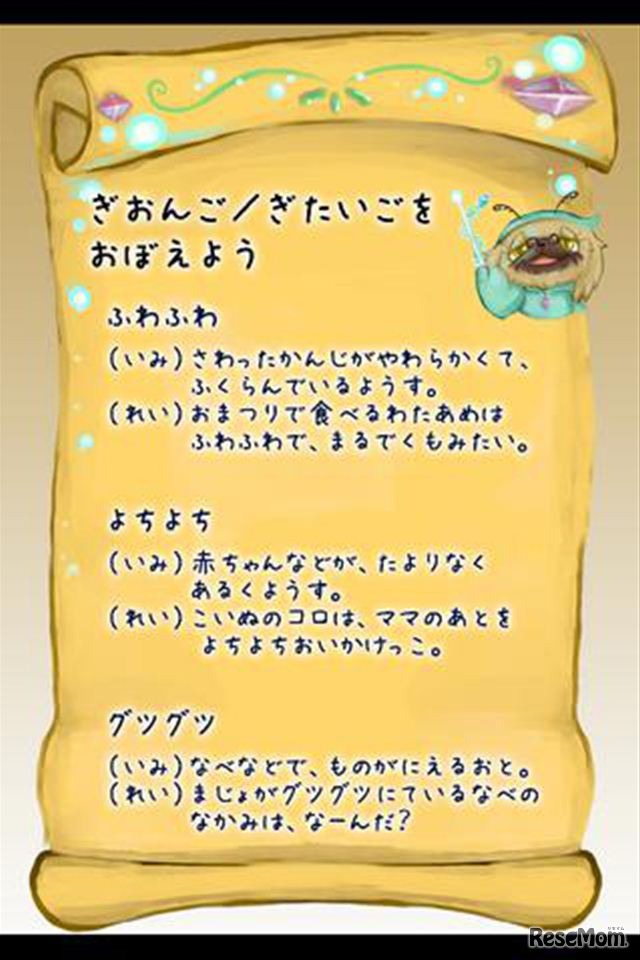 ぎおんご／ぎたいごを
おぼえよう
ふわふわ
(いみ)さわったかんじがやわらかくて、
ふくらんでいるようす。
(れい)おまつりで食べるわたあめは
ふわふわで、まるでくもみたい。
よちよち
(いみ)赤ちゃんなどが、たよりなく
あるくようす。
(れい)こいぬのコロは、ママのあとを
よちよちおいかけっこ。
グツグツ
(いみ)なべなどで、ものがにえるおと。
(れい)まじょがグツグツにているなべの
なかみは、なーんだ？
リセマム
ReseMom